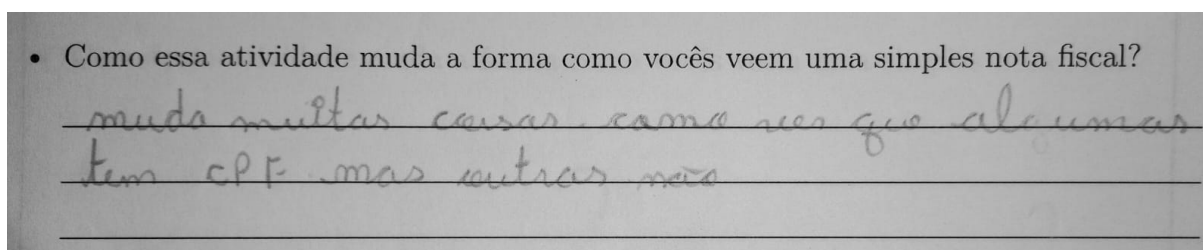 • Como essa atividade muda a forma como vocês veem uma simples nota fiscal?
muda muitas coisas. como ver que algumas
tem CPF mas outras não